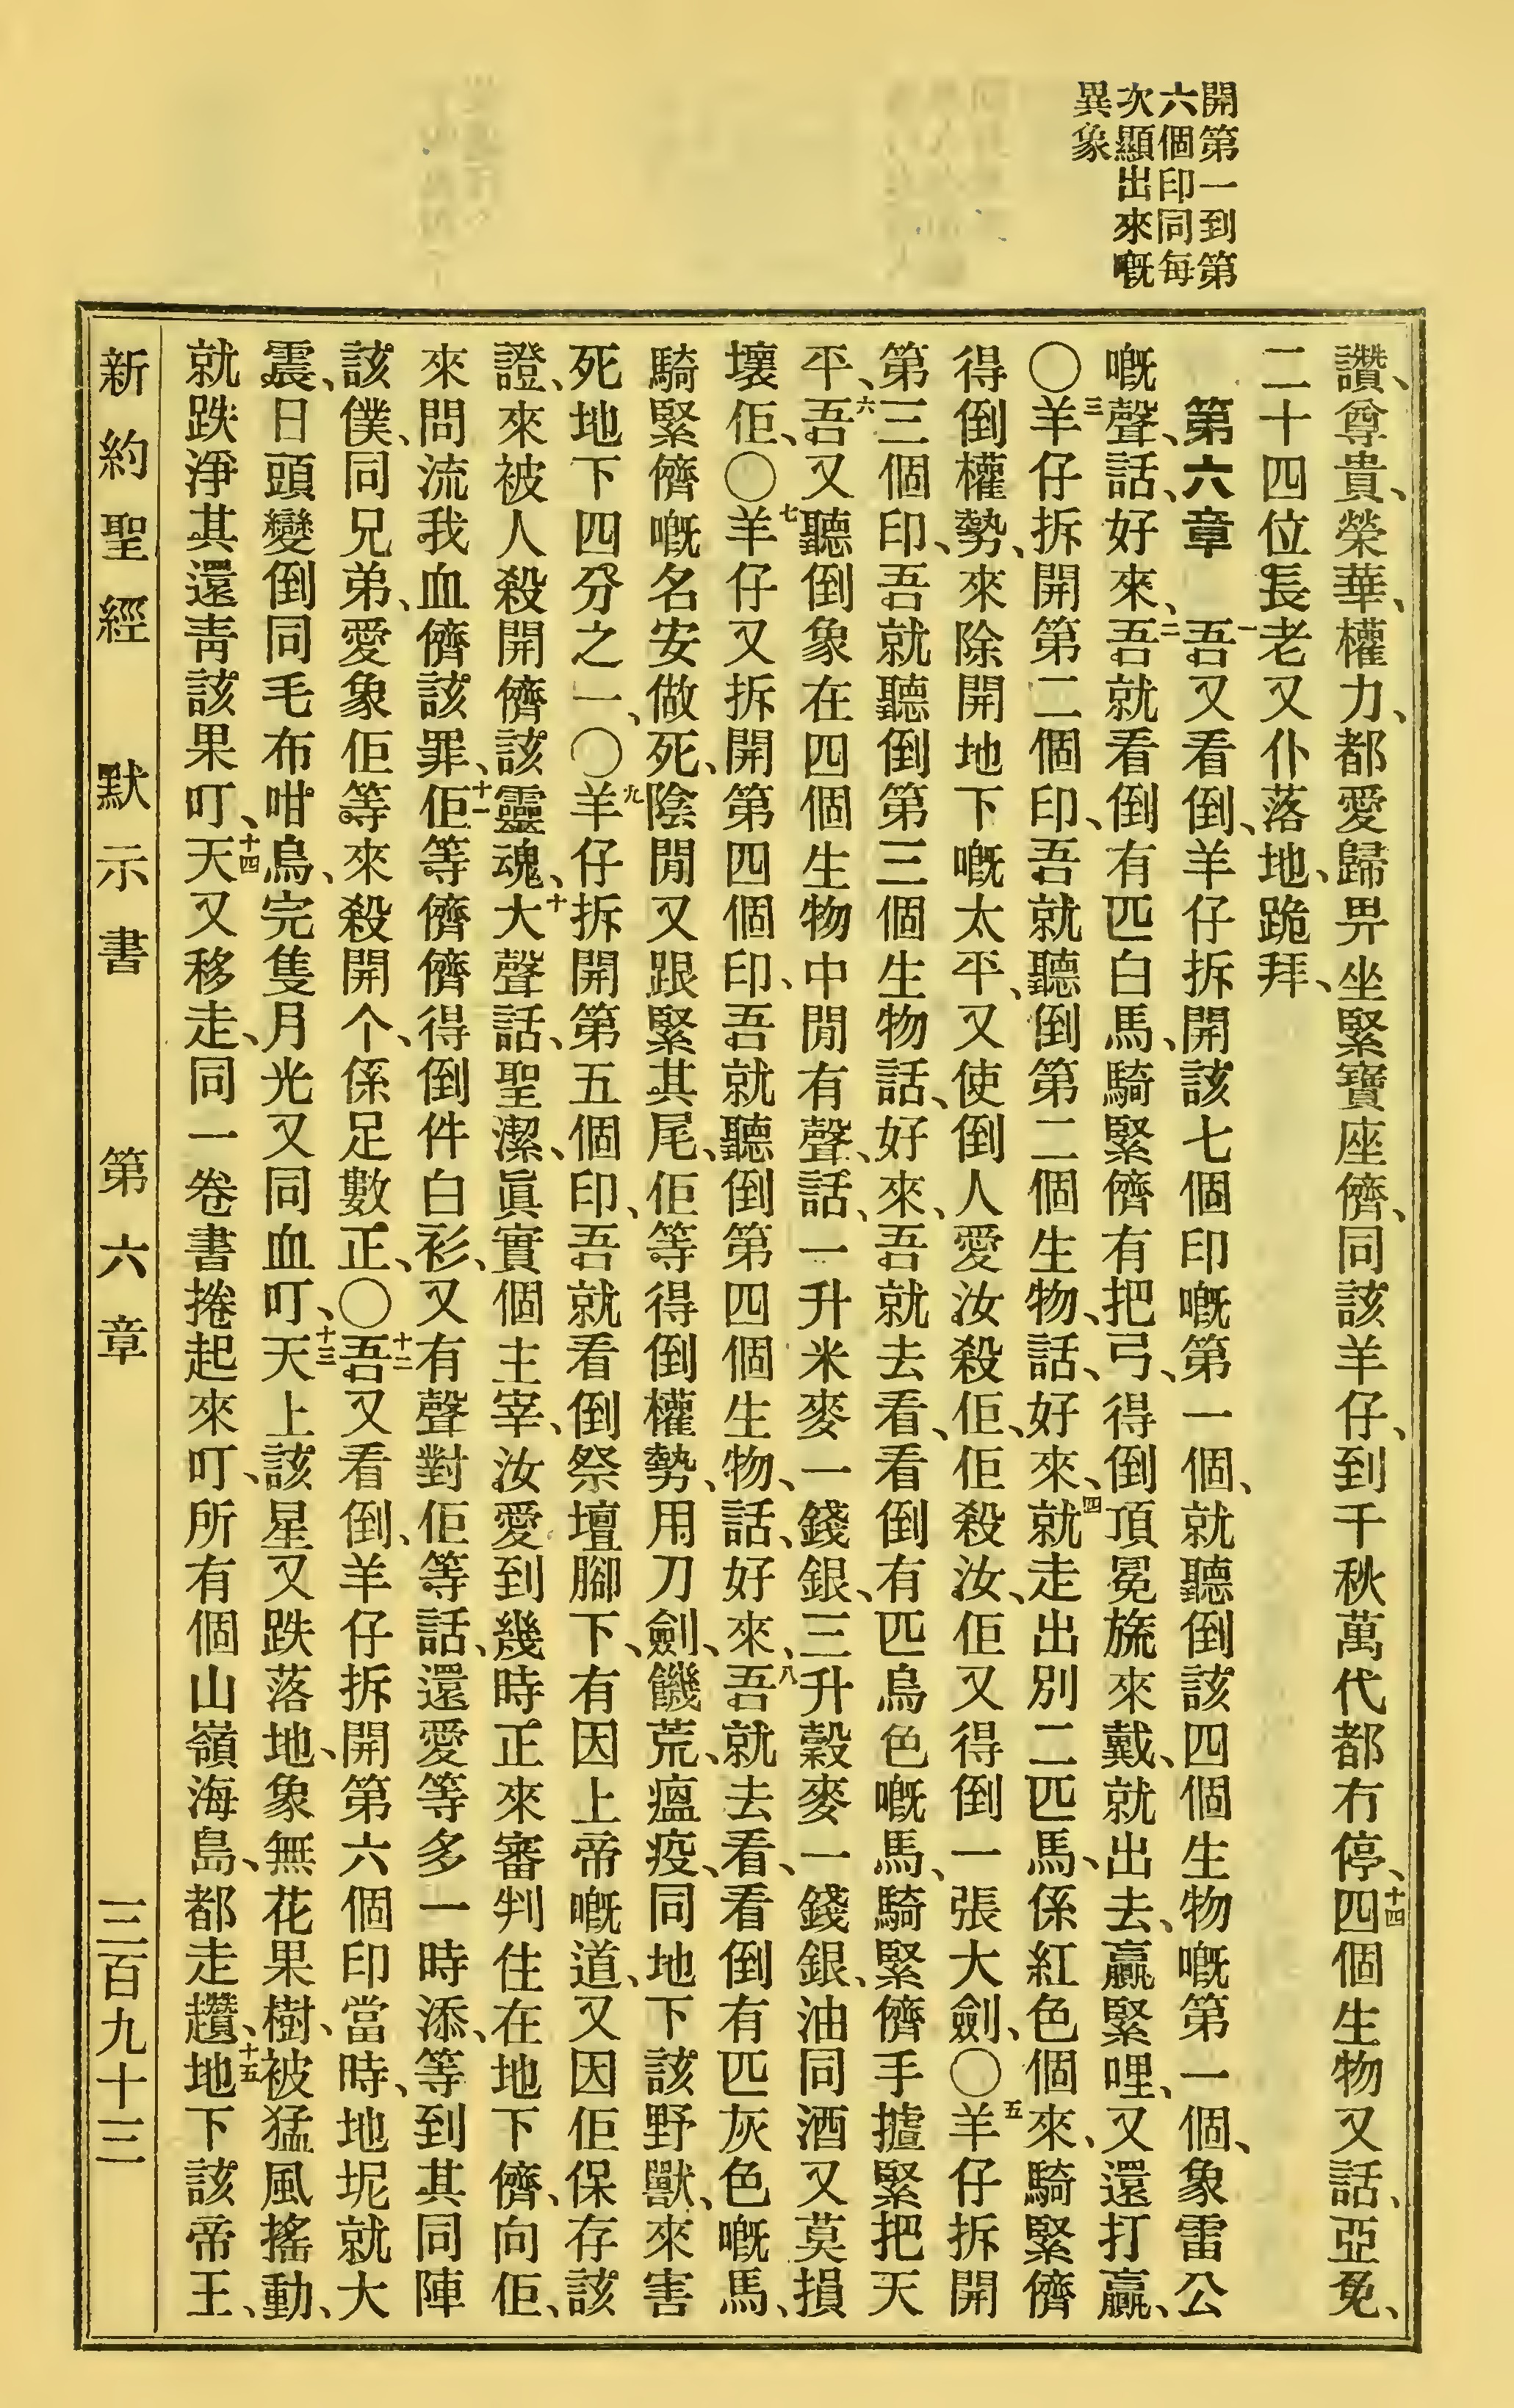 開第一到第
六個印同每
次顯出來嘅
異象
讚、尊貴、榮華、權力、都愛歸畀坐緊寶座儕、同該羊仔、到千秋萬代都冇停、十四四個生物又話、亞𠓗、
二十四位長老又仆落地、跪拜、
第六章 一吾又看倒、羊仔拆開該七個印嘅第一個、就聽倒該四個生物嘅第一個、象雷公
嘅聲、話、好來、二吾就看倒有匹白馬、騎緊儕有把弓、得倒頂冕旒來戴、就出去、贏緊哩、又還打贏、
〇三羊仔拆開第二個印、吾就聽倒第二個生物、話、好來、四就走出別二匹馬、係紅色個來、騎緊儕
得倒權勢、來除開地下嘅太平、又使倒人愛汝殺佢、佢殺汝、佢又得倒一張大劍、〇五羊仔拆開
第三個印、吾就聽倒第三個生物話、好來、吾就去看、看倒有匹烏色嘅馬、騎緊儕手攎緊把天
平、六吾又聽倒象在四個生物中間有聲、話、一升米麥一錢銀、三升穀麥一錢銀、油同酒又莫損
壞佢、〇七羊仔又拆開第四個印、吾就聽倒第四個生物、話、好來、八吾就去看、看倒有匹灰色嘅馬、
騎緊儕嘅名安做死、陰間又跟緊其尾、佢等得倒權勢、用刀劍、饑荒、瘟疫、同地下該野獸、來害
死地下四分之一、〇九羊仔拆開第五個印、吾就看倒祭壇腳下、有因上帝嘅道、又因佢保存該
證、來被人殺開儕該靈魂、十大聲話、聖潔、眞實個主宰、汝愛到幾時正來審判住在地下儕、向佢、
來問流我血儕該罪、十一佢等儕儕得倒件白衫、又有聲對佢等話、還愛等多一時添、等到其同陣
該僕、同兄弟、愛象佢等來殺開个、係足數正、〇十二吾又看倒、羊仔拆開第六個印當時、地坭就大
震、日頭變倒同毛布咁烏、完隻月光又同血叮、十三天上該星又跌落地、象無花果樹、被猛風搖動、
就跌淨其還靑該果叮、十四天又移走、同一卷書捲起來叮、所有個山嶺海島、都走趲、十五地下該帝王、
新約聖經 默示書 第六章 三百九十三